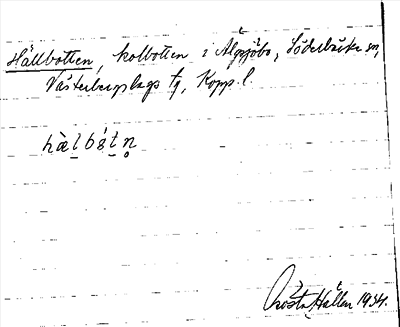 Hällbotten, kolbotten i Älgsjöbo, Söderbärke sn,
Västerbergslags tg, Kopp. l.
hæ̀lbótn̥
Gösta Hallen 1934.